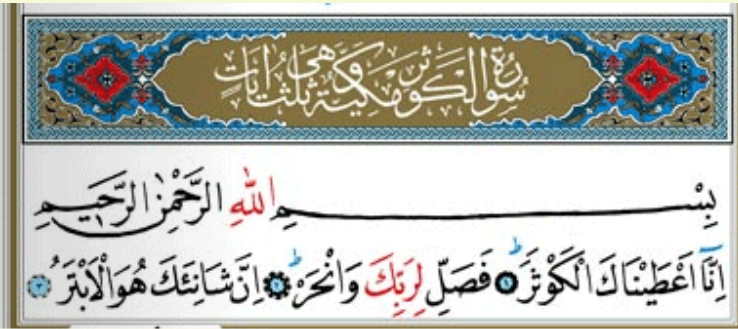 سُورَةُ الْكَوْثَرِ مَكِّيَّةٌ وَهِيَ ثَلٰثُ اٰيَاتٍ
بِسْمِ اللّٰهِ الرَّحْمٰنِ الرَّحِيمِ
اِنَّٓا اَعْطَيْنَاكَ الْكَوْثَرَ ط ۝١ فَصَلِّ لِرَبِّكَ وَانْحَرْ ط ۝٢ اِنَّ شَانِئَكَ هُوَ الْاَبْتَرُ ۝٣